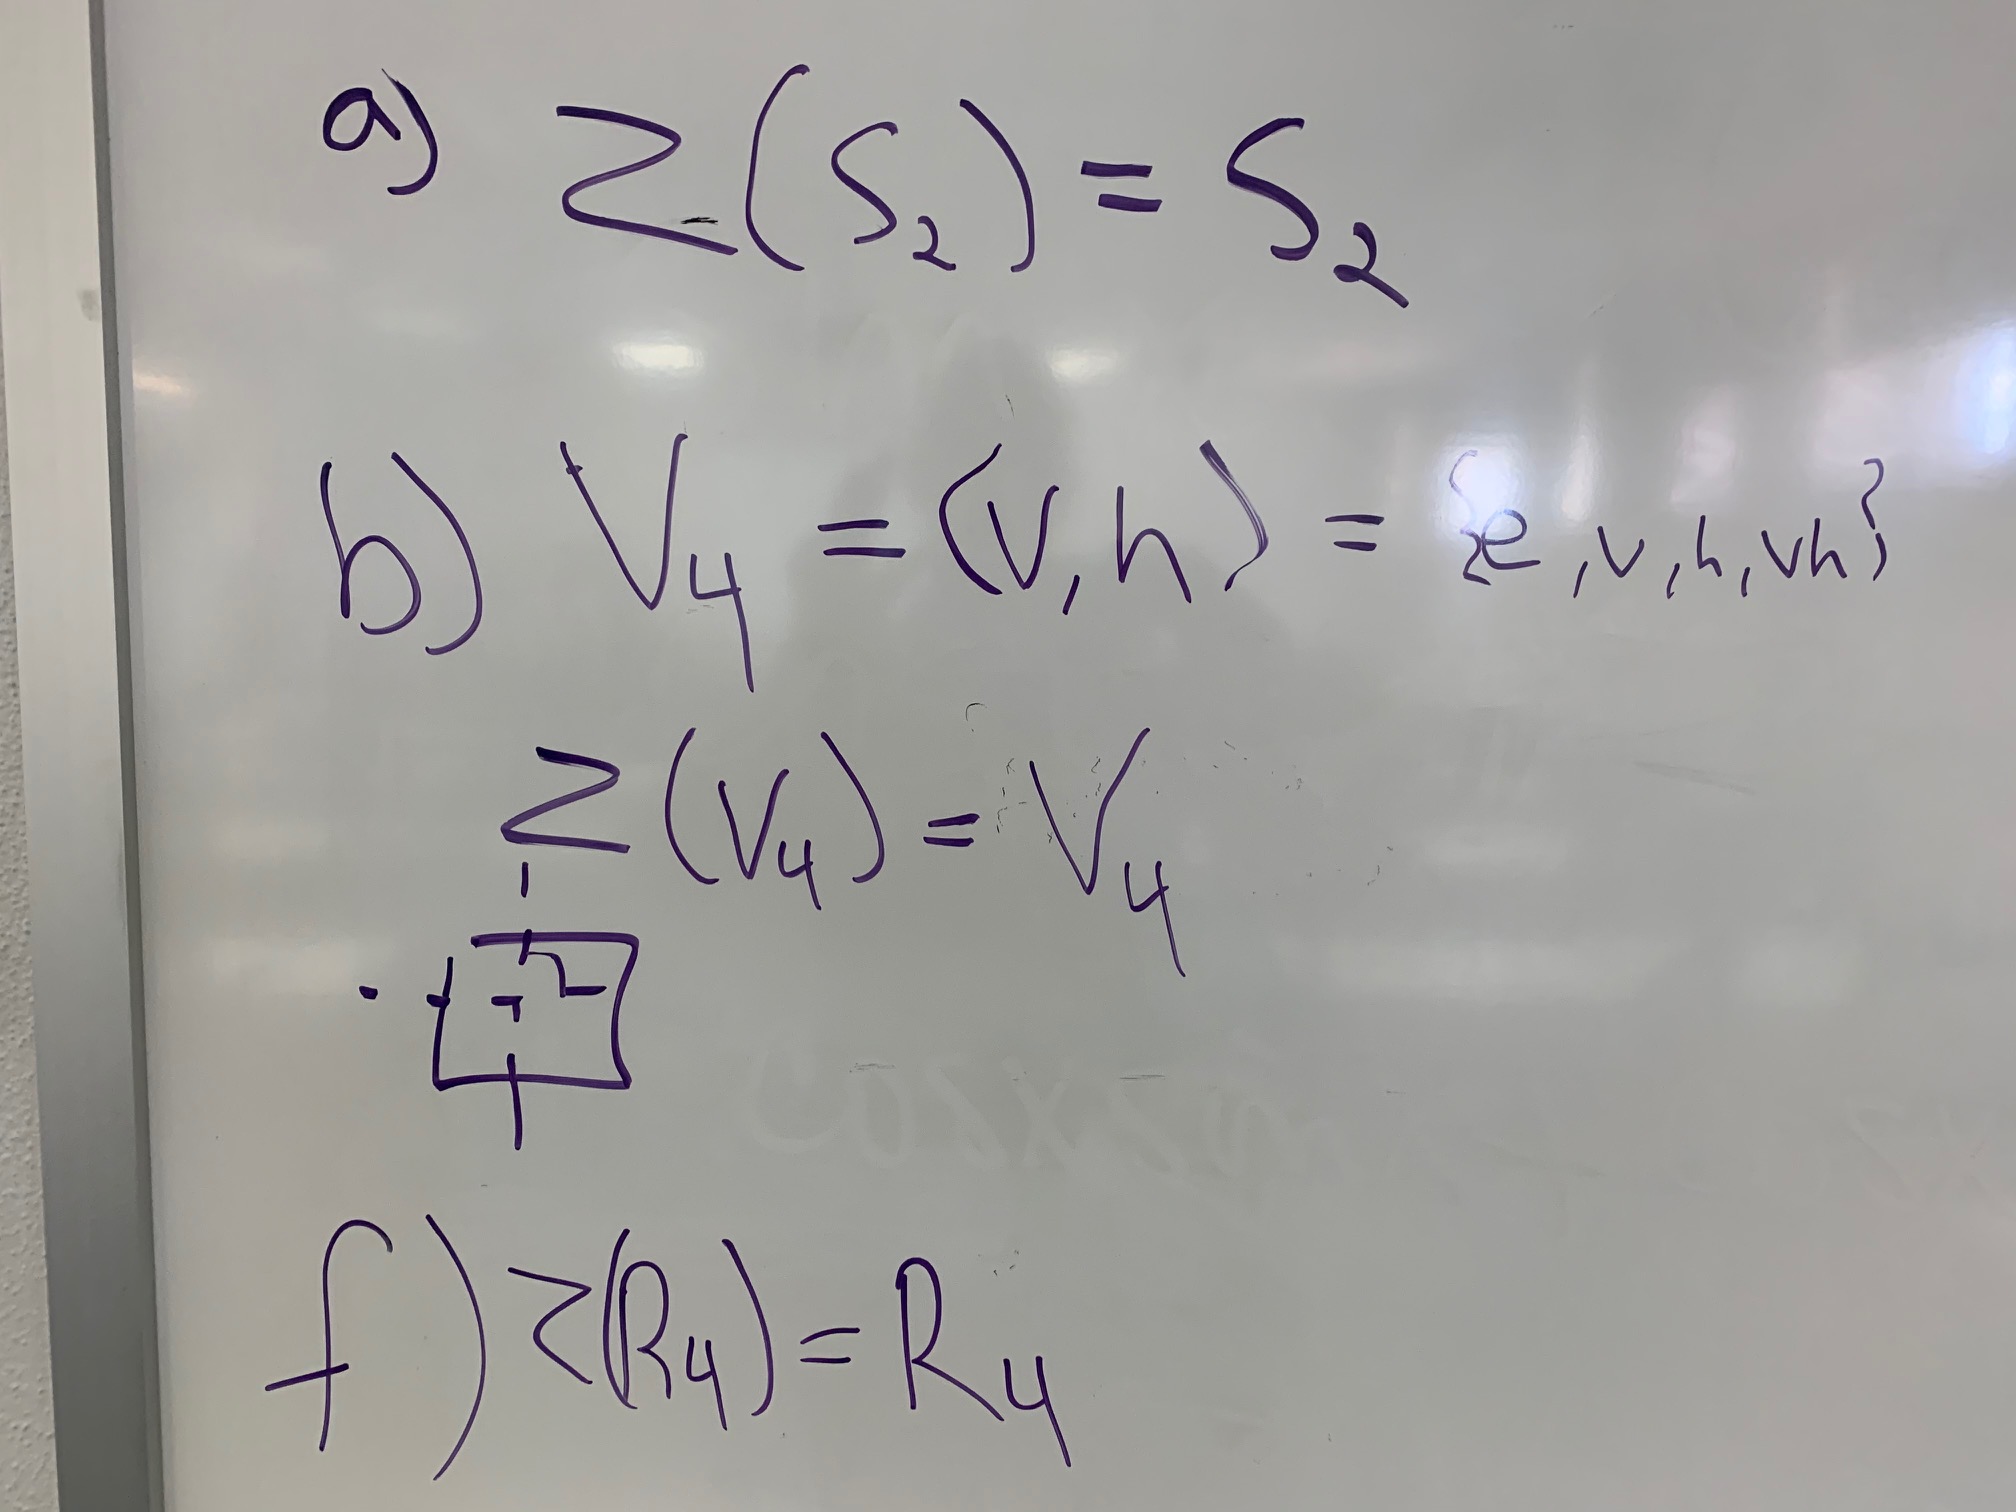 a) Z(S₂) = S₂
b) V₄ = ⟨v,h⟩ = {e,v,h,vh}
Z(V₄) = V₄
f) Z(R₄) = R₄